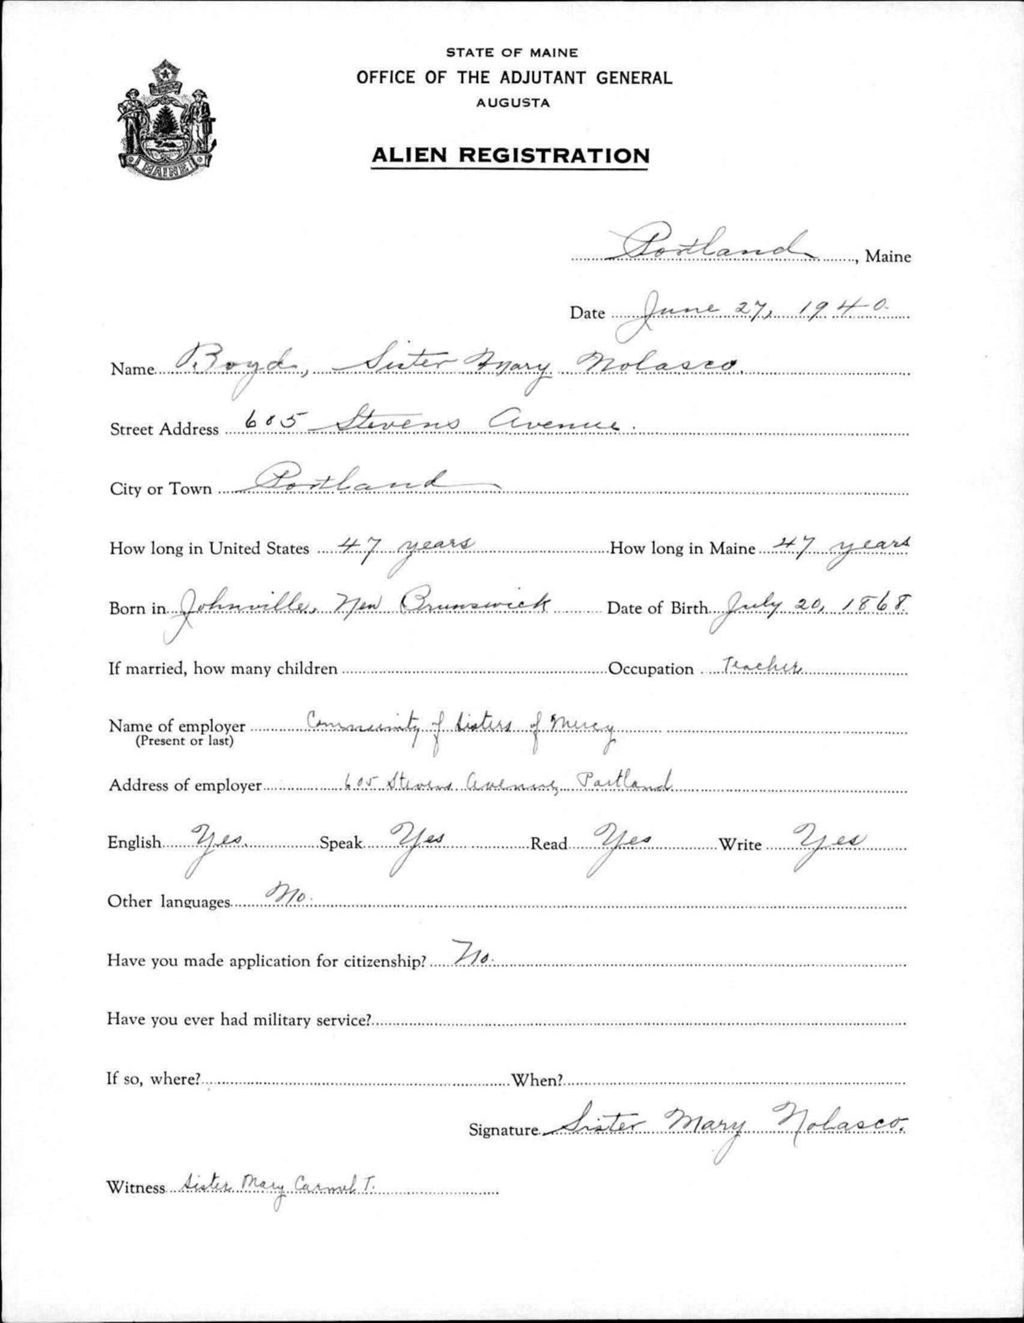 STATE OF MAINE
OFFICE OF THE ADJUTANT GENERAL
AUGUSTA
ALIEN REGISTRATION
MAINE
Portland, Maine
Date June 27, 1940
Name Boyd, Sister Mary Nolasco.
Street Address 605 Stevens Avenue.
City or Town Portland
How long in United States 47 years How long in Maine 47 years
Born in Johnville, New Brunswick Date of Birth July 20, 1868
If married, how many children Occupation Teacher
Name of employer Community of Sisters of Mercy
(Present or last)
Address of employer 605 Stevens Avenue, Portland
English Yes. Speak Yes Read Yes Write Yes
Other languages No.
Have you made application for citizenship? No.
Have you ever had military service?
If so, where? When?
Signature Sister Mary Nolasco.
Witness Sister Mary Carmel T.